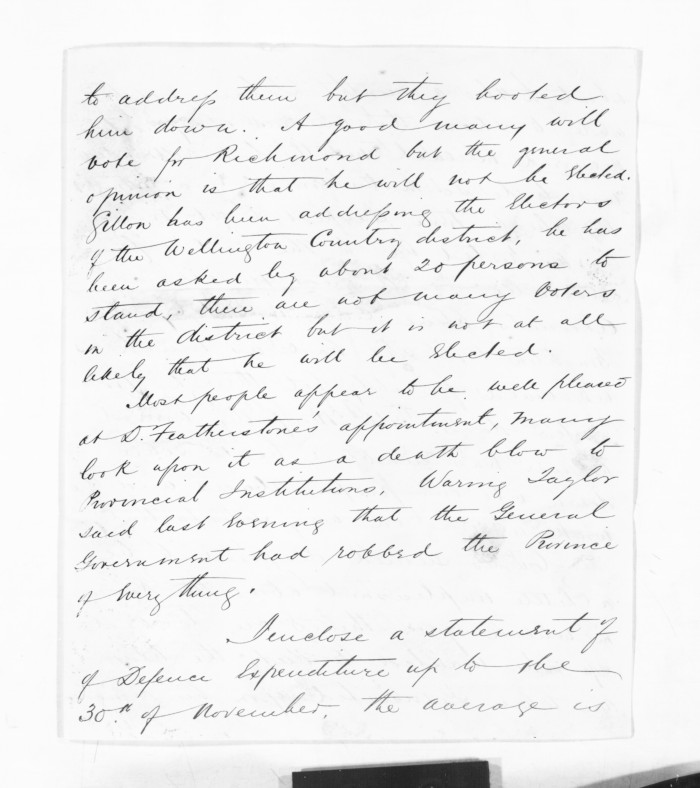 to address them but they hooted
him down. A good many will
vote for Richmond but the general
opinion is that he will not be Elected.
Gillon has been addressing the Electors
of the Wellington Country district, he has
been asked by about 20 persons to
stand, there are not many Voters
in the district but it is not at all
likely that he will be Elected.
Most people appear to be well pleased
at D. Featherstone's appointment, many
look upon it as a death blow to
Provincial Institutions, Waring Taylor
said last Evening that the General
Government had robbed the Province
of Everything.
I enclose a statement of
of Defence Expenditure up to the
30.th of November, the average is